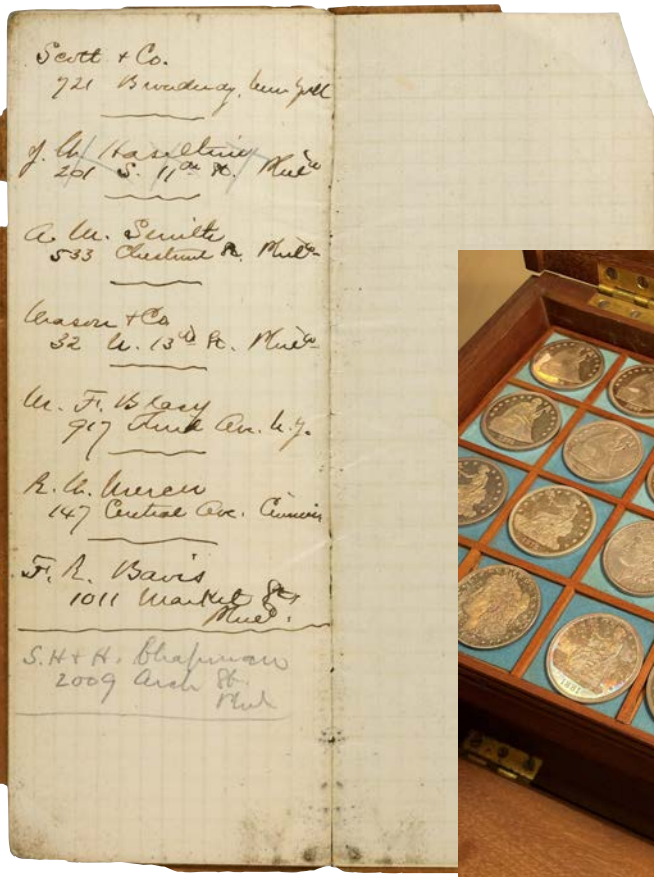 Scott & Co.
721 Broadway, New York
J. W. Haseltine
201 S. 11th St. Phila
A. M. Smith
533 Chestnut St. Phila
Mason & Co
32 N. 13th St. Phila
W. F.
917 Ave. N.Y.
R. W. Mercer
147 Central Ave. Cincin
F. R. Davis
1011 Market St.
Phil.
S. H & H. Chapman
2009 Arch St.
Phil
1881